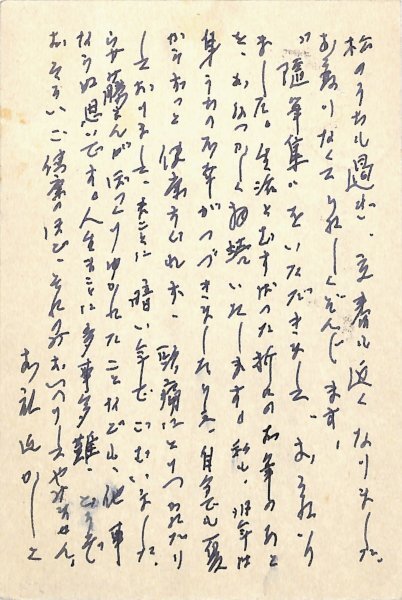 松のうちも過ぎ、立春も近くなりました。
お変りなくてうれしくぞんじます。
"随筆集"をいただきまして、お礼
ました。生活とむすばった折々のお筆のあと
を、おなつかしく拝読いたします。私も、昨年は
身うちの不幸がつづきましたりし、自分でも夏
からずっと健康すぐれず、頭痛にとりつかれたり
しておりまして、まことに暗い年でございました。
安藤さんがぽっくりゆかれたことなども、他事
ならぬ思いです。人生まことに多事多難、どうぞ
おそろいご健康のほど、それのみおいのりしてやみません。
お礼